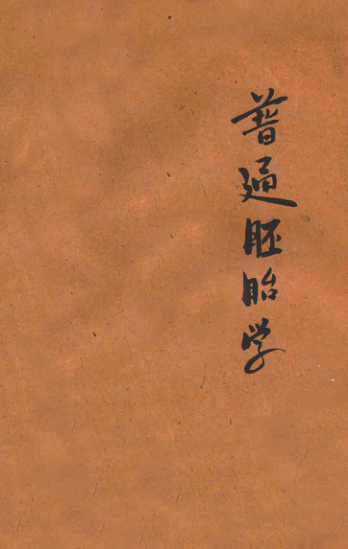 普通胚胎学